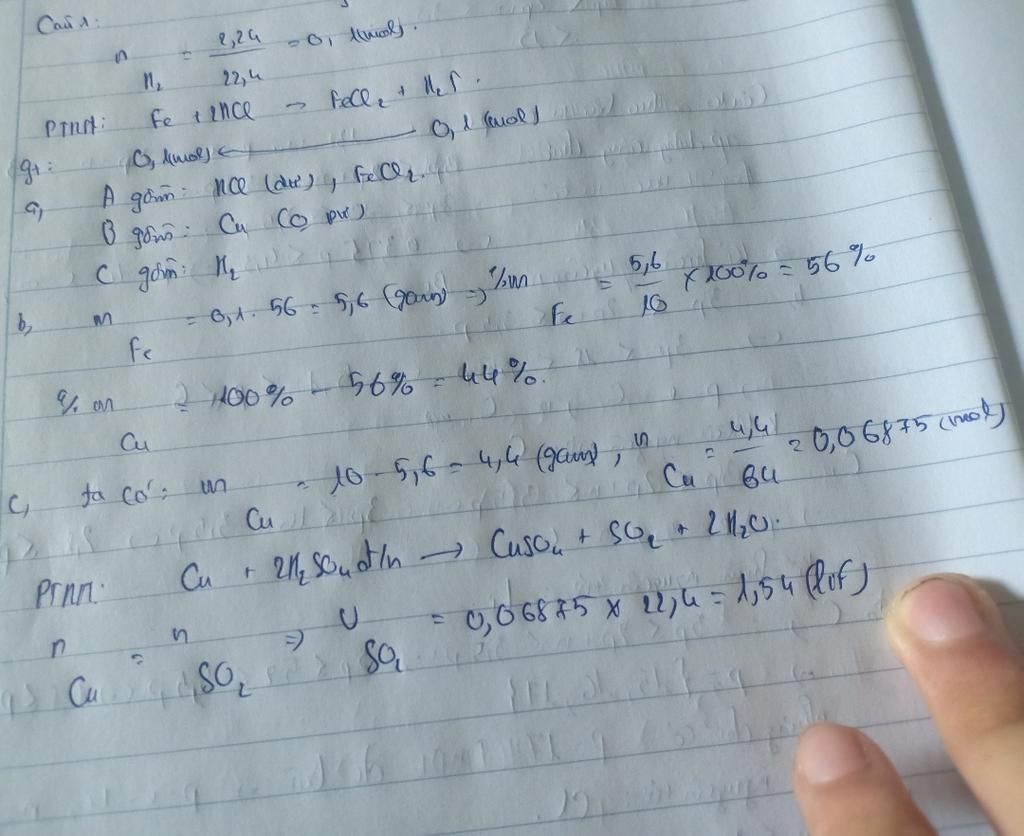 Câu 1:
n H₂ = 2,24/22,4 = 0,1 (mol).
PTHH: Fe + 2HCl → FeCl₂ + H₂↑.
gt: 0,1(mol) ← 0,1 (mol)
a, A gồm: HCl (dư), FeCl₂.
B gồm: Cu (Ko pư)
C gồm: H₂
b, m Fe = 0,1. 56 = 5,6 (gam) => %m Fe = 5,6/10 × 100% = 56%
% m Cu = 100% - 56% = 44%.
c, ta có: m Cu = 10 - 5,6 = 4,4 (gam), n Cu = 4,4/64 = 0,06875 (mol)
PTHH: Cu + 2H₂SO₄ đ/n → CuSO₄ + SO₂ + 2H₂O.
n Cu = n SO₂ => V SO₂ = 0,06875 × 22,4 = 1,54 (lít)